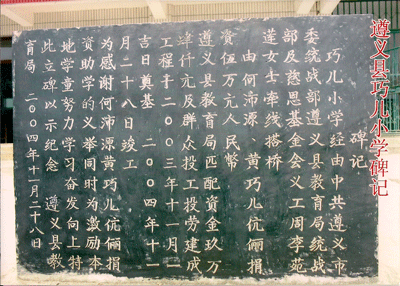 遵义县巧儿小学碑记
碑记
巧儿小学经由中共遵义市
委统战部遵义县教育局统战
部及慈恩基金会义工周李苑
莲女士牵线搭桥
由何沛源 黄巧儿伉俪捐
資伍万元人民幣
遵义县教育局匹配资金玖万
肆仟元及群众投工投劳建成
工程于二〇〇三年十一月一
吉日奠基 二〇〇四年十一
月二十八日竣工
为感谢何沛源黄巧儿伉俪捐
资助学的义举同时为激励本
地学童努力学习奋发向上特
此立碑以示纪念 遵义县教
育局 二〇〇四年十一月二十八日